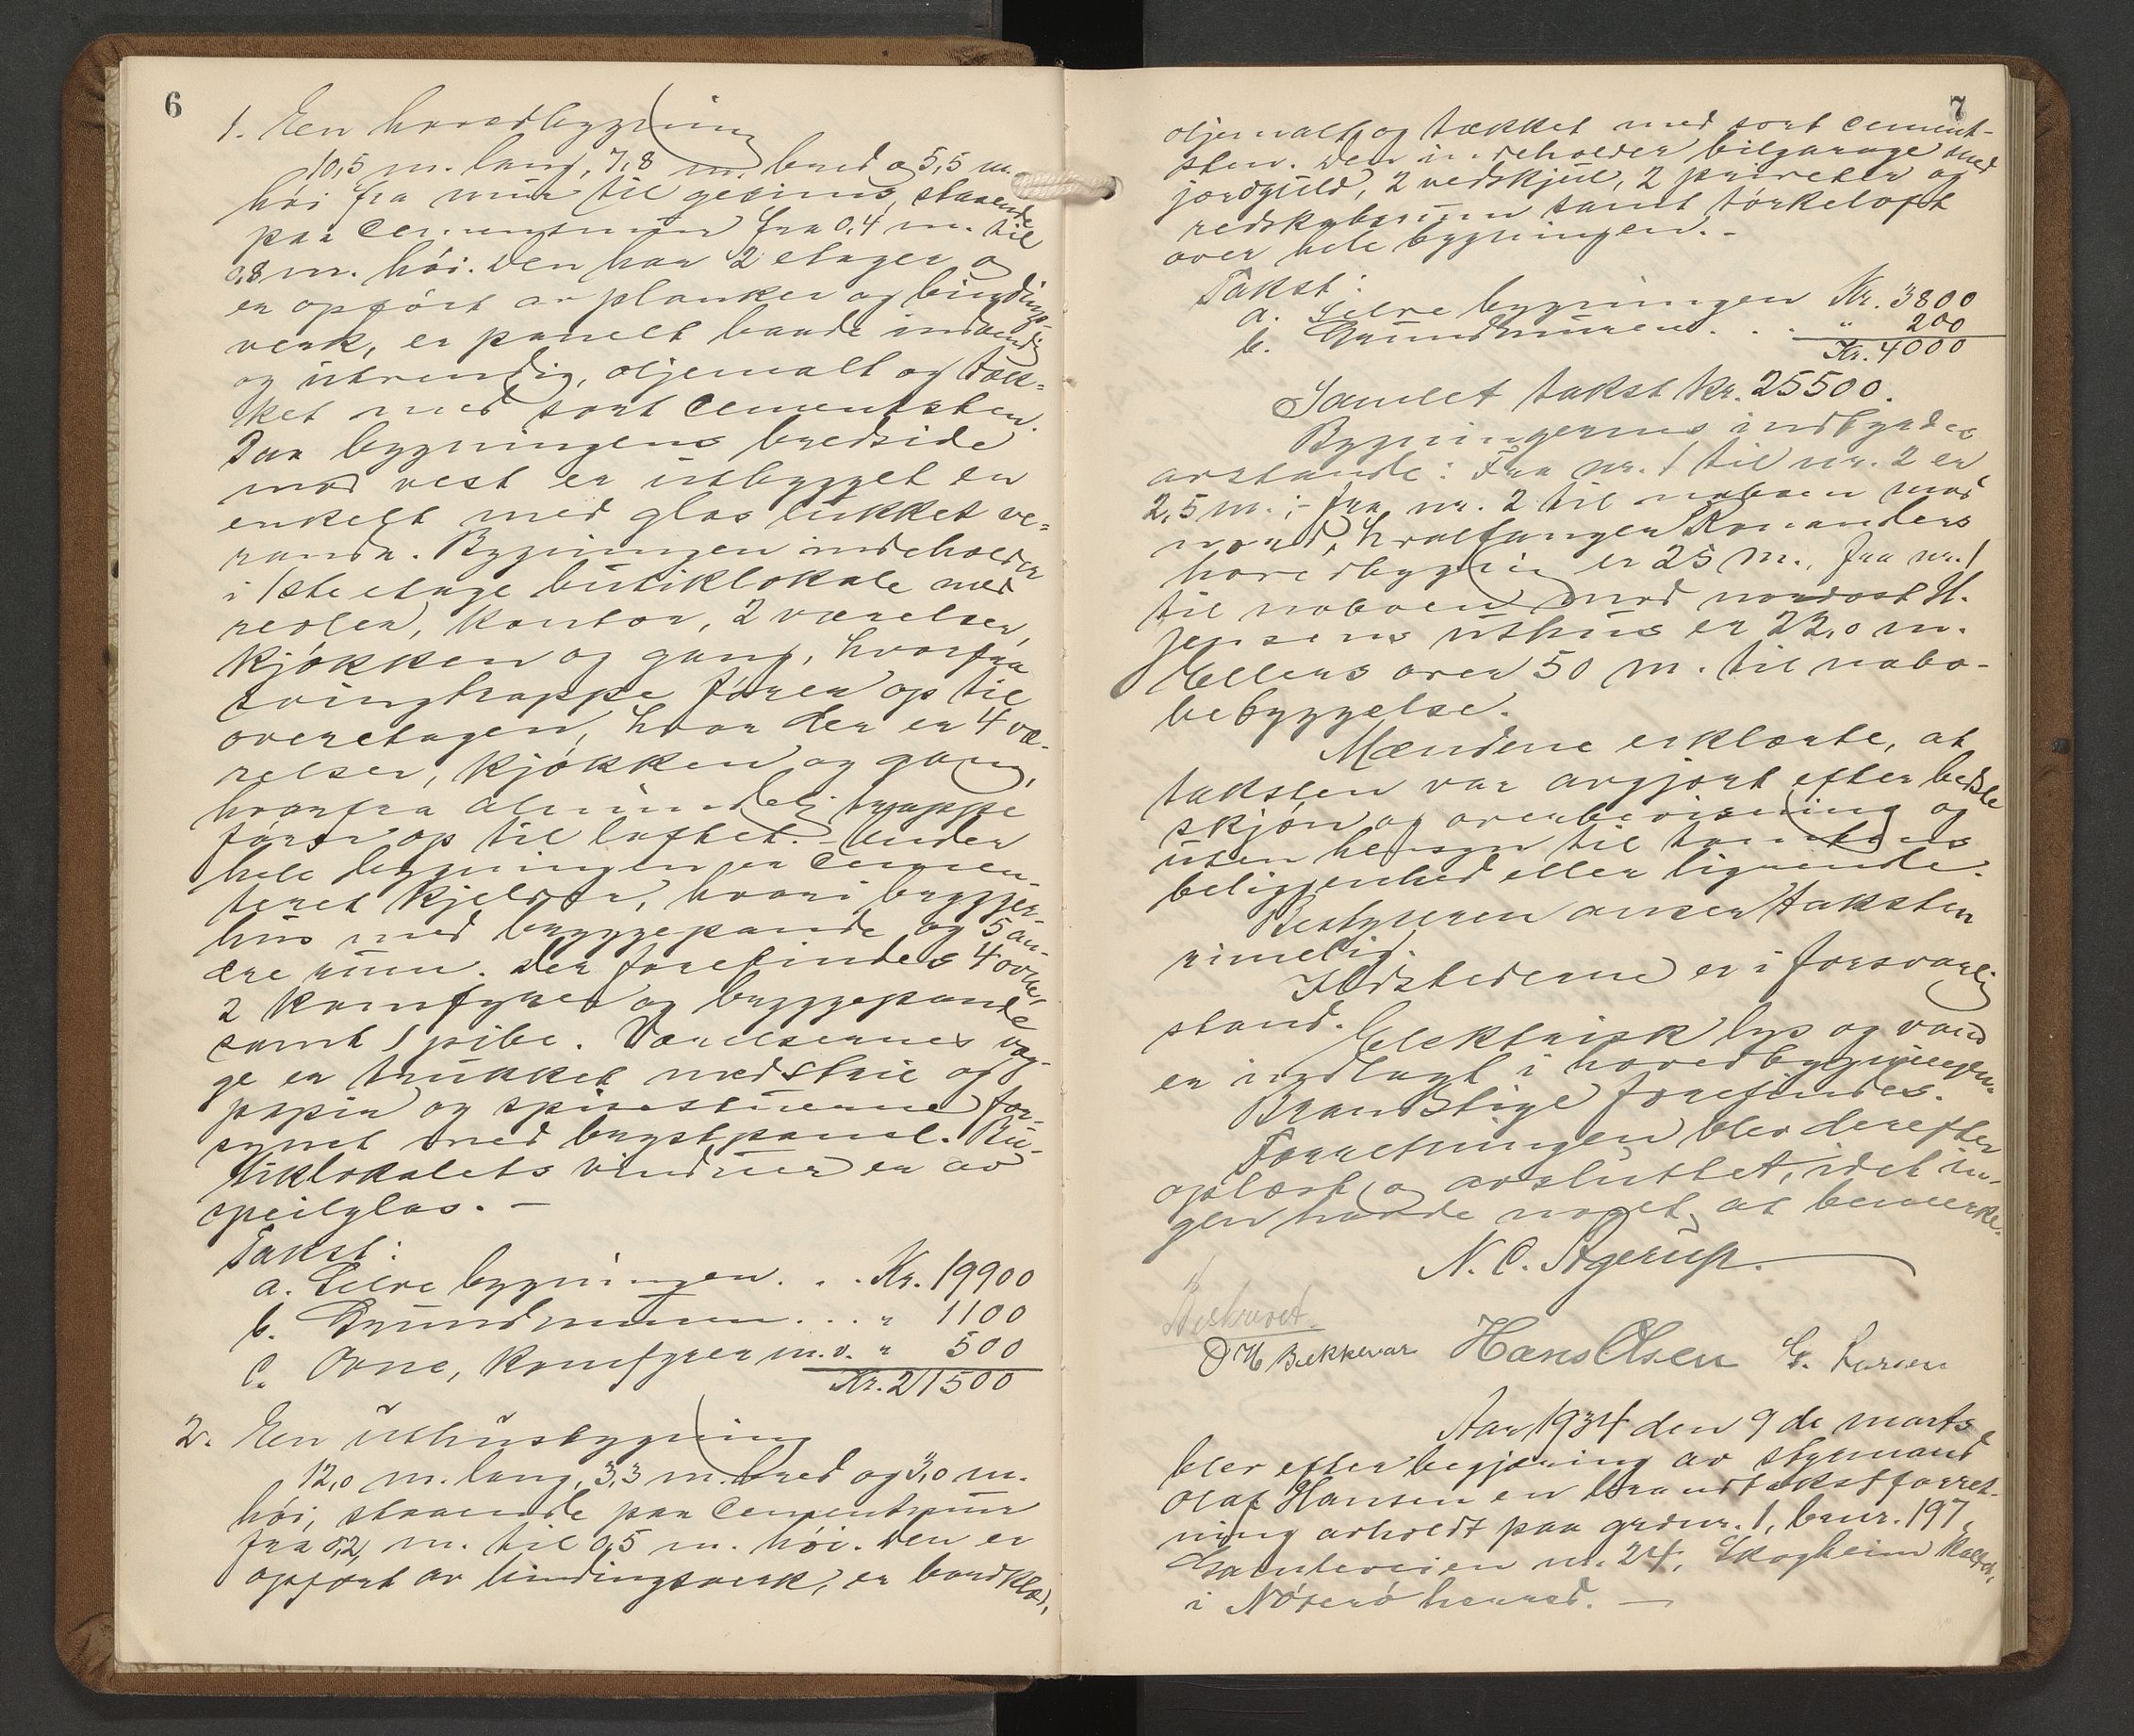 6
1. En hovedbygning
10,5 m. lang, 7,8 m. bred og 5,5 m.
høi fra mur til gesims, staaende
paa Cementmur fra 0,4 m. til
0,8 m. høi. Den har 2 etager og
er opført av planker og bindings-
verk, er panelt baade indvendig
og utvendig, oljemalt og tæk-
ket med sort Cementsten.
Paa bygningens bredside
mod vest er utbygget en
enkelt med glas lukket ve-
randa. Bygningen indeholder
i 1ste etage butiklokale med
reoler, kontor, 2 værelser,
kjøkken og gang, hvorfra
svingtrappe fører op til
overetagen, hvor der er 4 væ-
relser, kjøkken og gang,
hvorfra almindelig trappe
fører op til loftet. Under
hele bygningen er Cemen-
teret kjelder, hvori brygger-
hus med bryggepande og 5 an-
dre rum. Der forefindes 4 ovne,
2 komfyrer og bryggepande
samt 1 pibe. Værelsernes væg-
ge er trukket med strie og
papir og spisestuerne for-
synet med brystpanel. Bu-
tiklokalets vinduer er av
speilglas. —
Takst:
a. Selve bygningen . . . Kr. 19900
b. Grundmuren . . . " 1100
C. Ovne, komfyrer m.v. " 500
Kr. 21500
2. En uthusbygning
12,0 m. lang, 3,3 m. bred og 3,0 m.
høi, staaende paa Cementmur
fra 0,2 m. til 0,5 m. høi. Den er
opført av bindingsverk, er bordklæd,
7
oljemalt og tækket med sort Cement-
sten. Den indeholder bilgarage med
jordgulv, 2 vedskjul, 2 priveter og
redskabsrum samt tørkeloft
over hele bygningen. -
Takst:
a. Selve bygningen Kr. 3800
b. Grundmuren . . . " 200
Kr. 4000
Samlet takst kr. 25500.
Bygningernes indbyrdes
avstande: Fra nr. 1 til nr. 2 er
2,5 m.;- fra nr. 2 til naboen mod
nord, hvalfanger Rolanders
hovedbygning er 25 m., fra nr. 1
til naboen mod nordost H.
Jensens uthus er 22,0 m.
Ellers over 50 m. til nabo-
bebyggelse.
Mændene erklærte, at
taksten var avgjort efter bedste
skjøn og overbevisning og
uten hensyn til tomtens
beliggenhed eller lignende.
Bestyreren anser taksten
rimelig.
Ildstederne er i forsvarlig
stand.
Elektrisk lys og vand
er indlagt i hovedbygningen.
Brandstige forefindes.
Forretningen blev derefter
oplæst og avsluttet, idet in-
gen havde noget at bemerke.
N. C. Agerup.
Beskrevet.
O H Bekkevar Hans Olsen G. Larsen
Aar 1934 den 9de marts
blev efter begjæring av styrmand
Olaf Hansen en brandtakstforret-
ning avholdt paa grdnr. 1, brnr. 197,
Gamleveien nr. 24, Skogheim kaldet,
i Nøterø herred. —